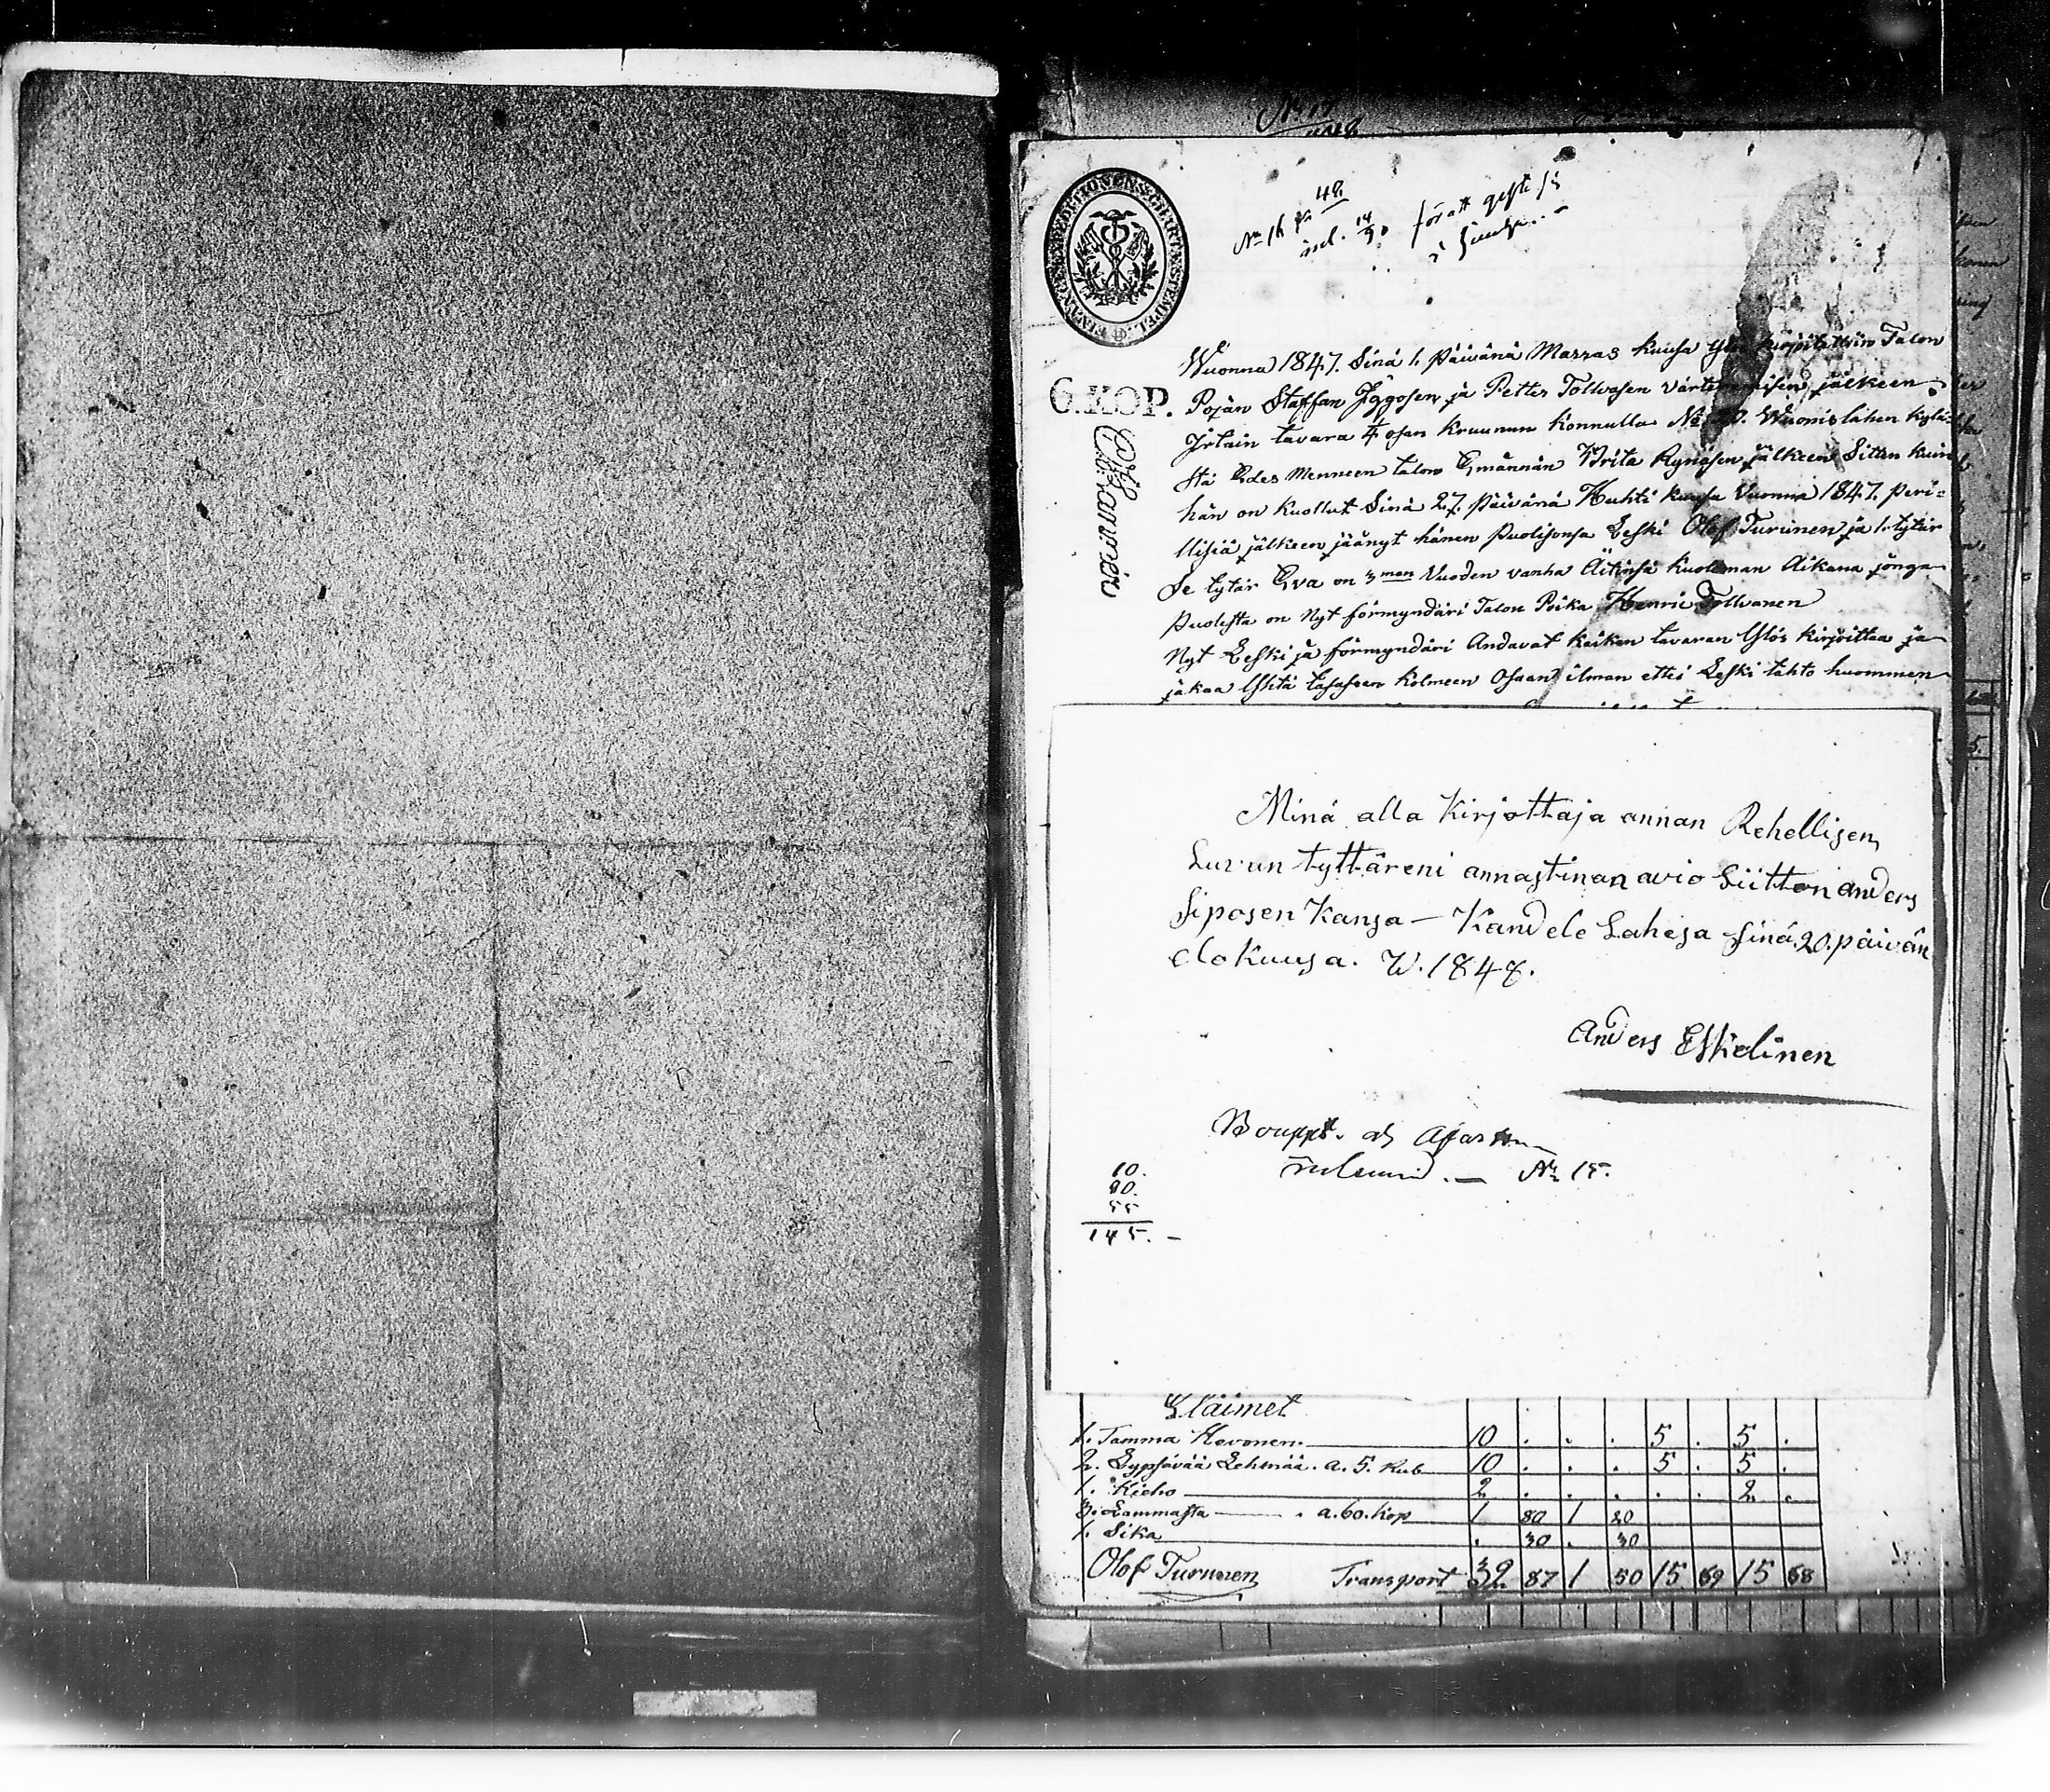 No 16 48
inl. 14/90 för att gifte sig
FINANCE EXPEDITIONENS CHARTÆ STEMPEL.
6. KOP.
Wuonna 1847. Sinä 1. Päivänä Marras kuusa Ylös kirjoitettiin Talon
Pojan Staffan Jggosen ja Petter Tollvasen värteeraamisen jälkeen
Jrtain tavara ¼ osan Kruunun Konnulla No Wuomislahen kylä-
stä Edes Menneen talon Emännän Brita Rynäsen jälkeen Sitten kuin
hän on Kuollut Sinä 27. Päivänä Huhti kuusa Vuonna 1847. Peri=
llisiä jälkeen jäänyt hänen Puolisonsa Leski Olof Turunen ja 1. tytär
Se tytär Eva on 3men Vuoden vanha Äitinsä Kuoleman Aikana jonga
Puolesta on Nyt förmyndäri Talon Poika Henric Tollvanen
Nyt Leski ja förmyndäri Andavat kaiken tavaran Ylös kirjoittaa ja
jakaa Ylhtä tasaseen Kolmeen Osaan ilman ettei Leski tahto huommen
Minä alla Kirjottaja annan Rehellisen
Luvun tyttäreni annastinan avio Siitton anders
Siposen Kansa – Kandele Lahesa sinä 20. päivän
elokuusa. W. 1848.
Anders Eskelinen
No 15.
10.
90.
55
145. –
Eläimet
1. Tamma Hevonen. 10 . . . 5 . 5 .
2. Lypsävää Lehmää. a. 5. Rub 10 . . . 5 . 5 .
1. Kieho 2 . . . . . 2 .
3. Lammasta . a. 60. kop 1 80 1 20
1. Sika . 30 . 30
Olof Turunen Transport 32 87 1 50 15 69 15 68